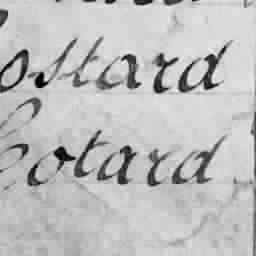 ostard
Cotard